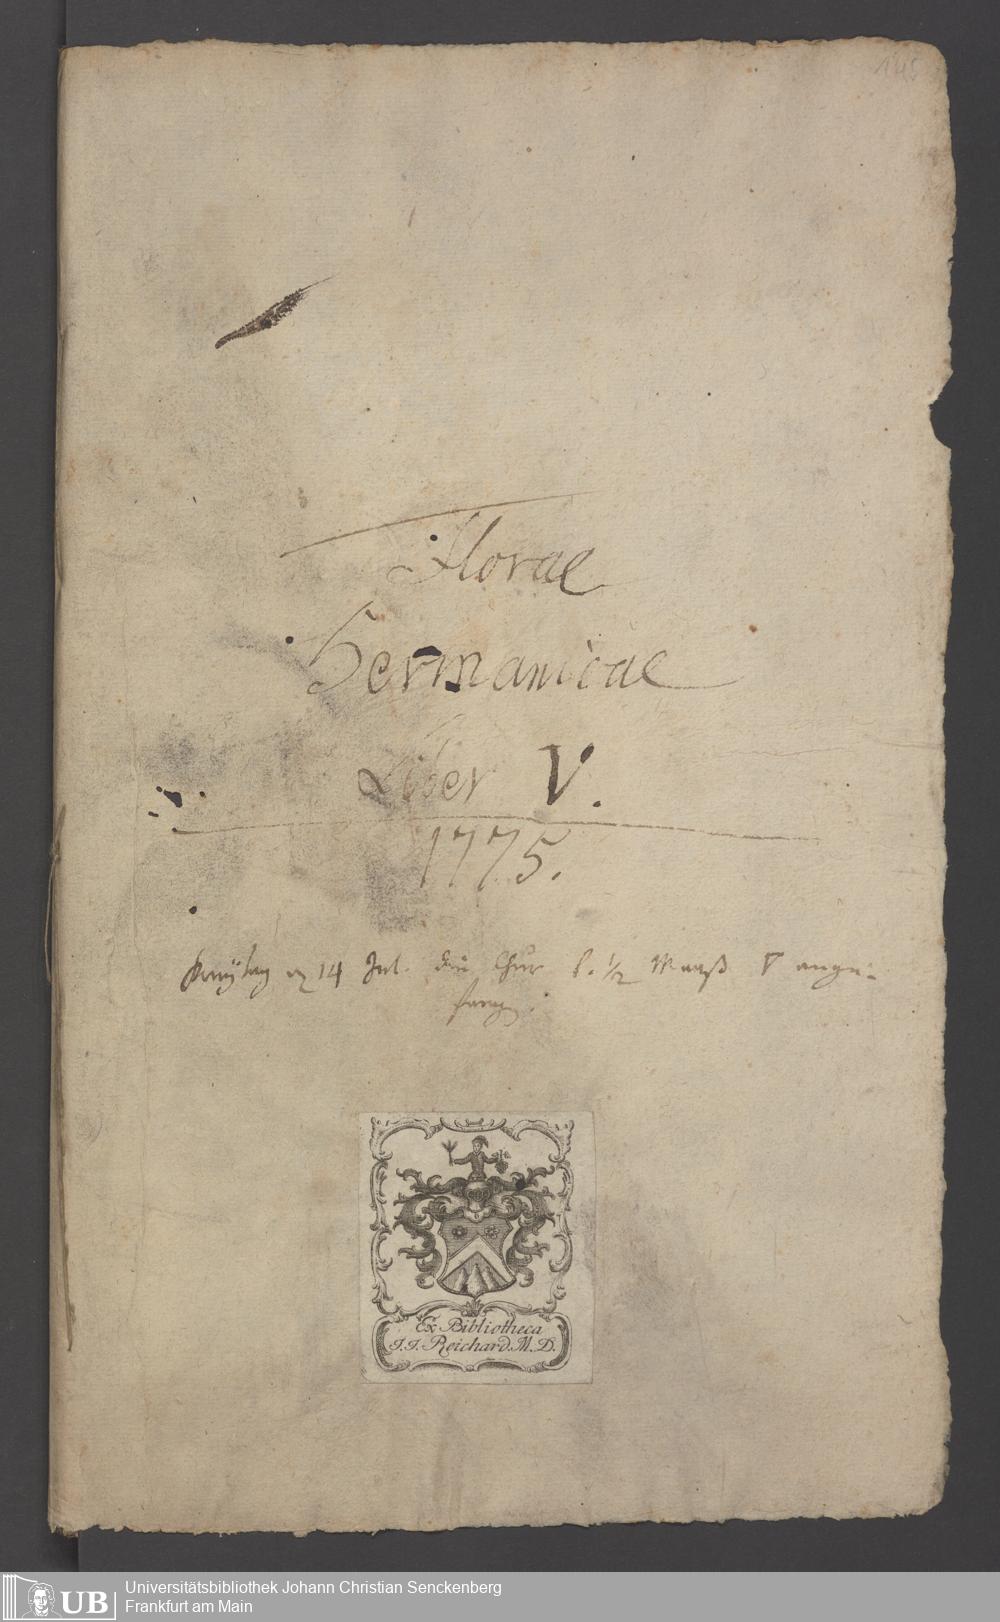 145
Florae
Germanicae
Liber V.
1775.
Freytag 14 Jul. die Chur 1/2 Maaß ange-
fang.
Ex Bibliotheca
J. J. Reichard. M. D.
UB
Universitätsbibliothek Johann Christian Senckenberg
Frankfurt am Main